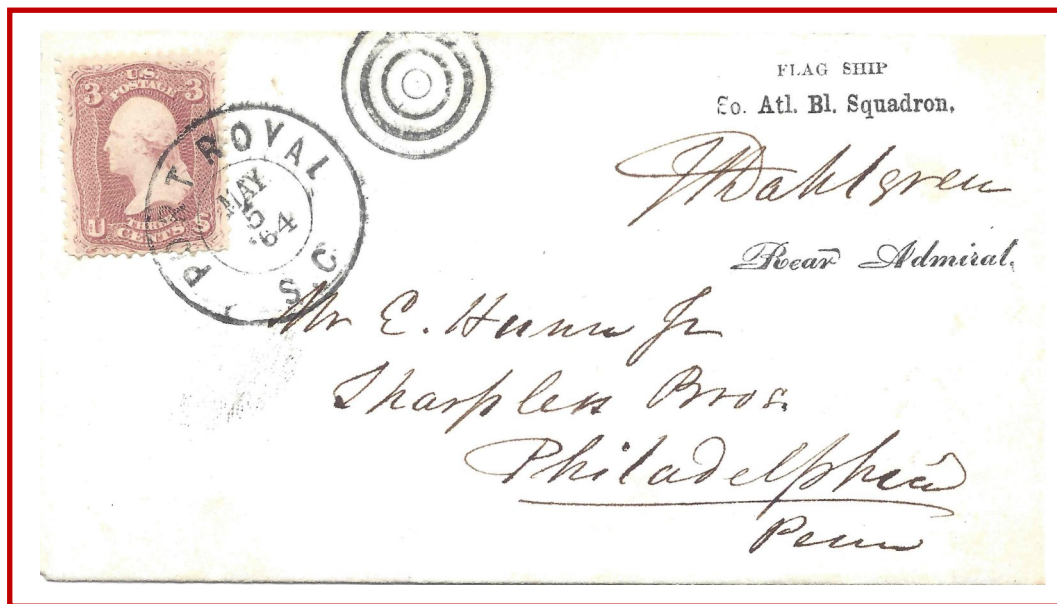 3 U.S. 3
POSTAGE
U THREE S
CENTS
PORT ROYAL
MAY
5
'64
S.C.
FLAG SHIP
So. Atl. Bl. Squadron,
JADahlgren
Rear Admiral.
Mr E. Hunn Jr
Sharpless Bros.
Philadelphia
Penn